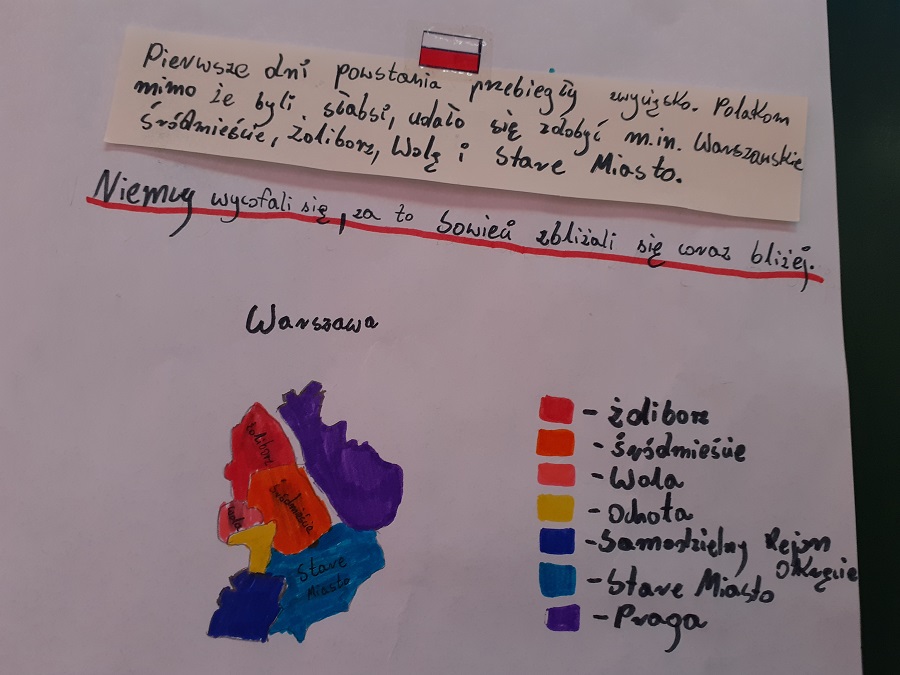 Pierwsze dni powstania przebiegły zwycięsko. Polakom
mimo że byli słabsi, udało się zdobyć m.in. Warszawskie
śródmieście, Żoliborz, Wolę i Stare Miasto.
Niemcy wycofali się, za to Sowieci zbliżali się coraz bliżej.
Warszawa
żoliborz
Śródmieście
Wola
Stare
Miasto
- żoliborz
- śródmieście
- Wola
- Ochota
- Samodzielny Rejon
Okęcie
- Stare Miasto
- Praga